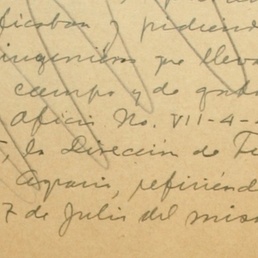 ticaban y pidiendo
ingenieros que lleva
campo y de gabi
Oficio No. VII-4-
, la Dirección de Ti
Agraria, refiriénd
7 de Julio del mism